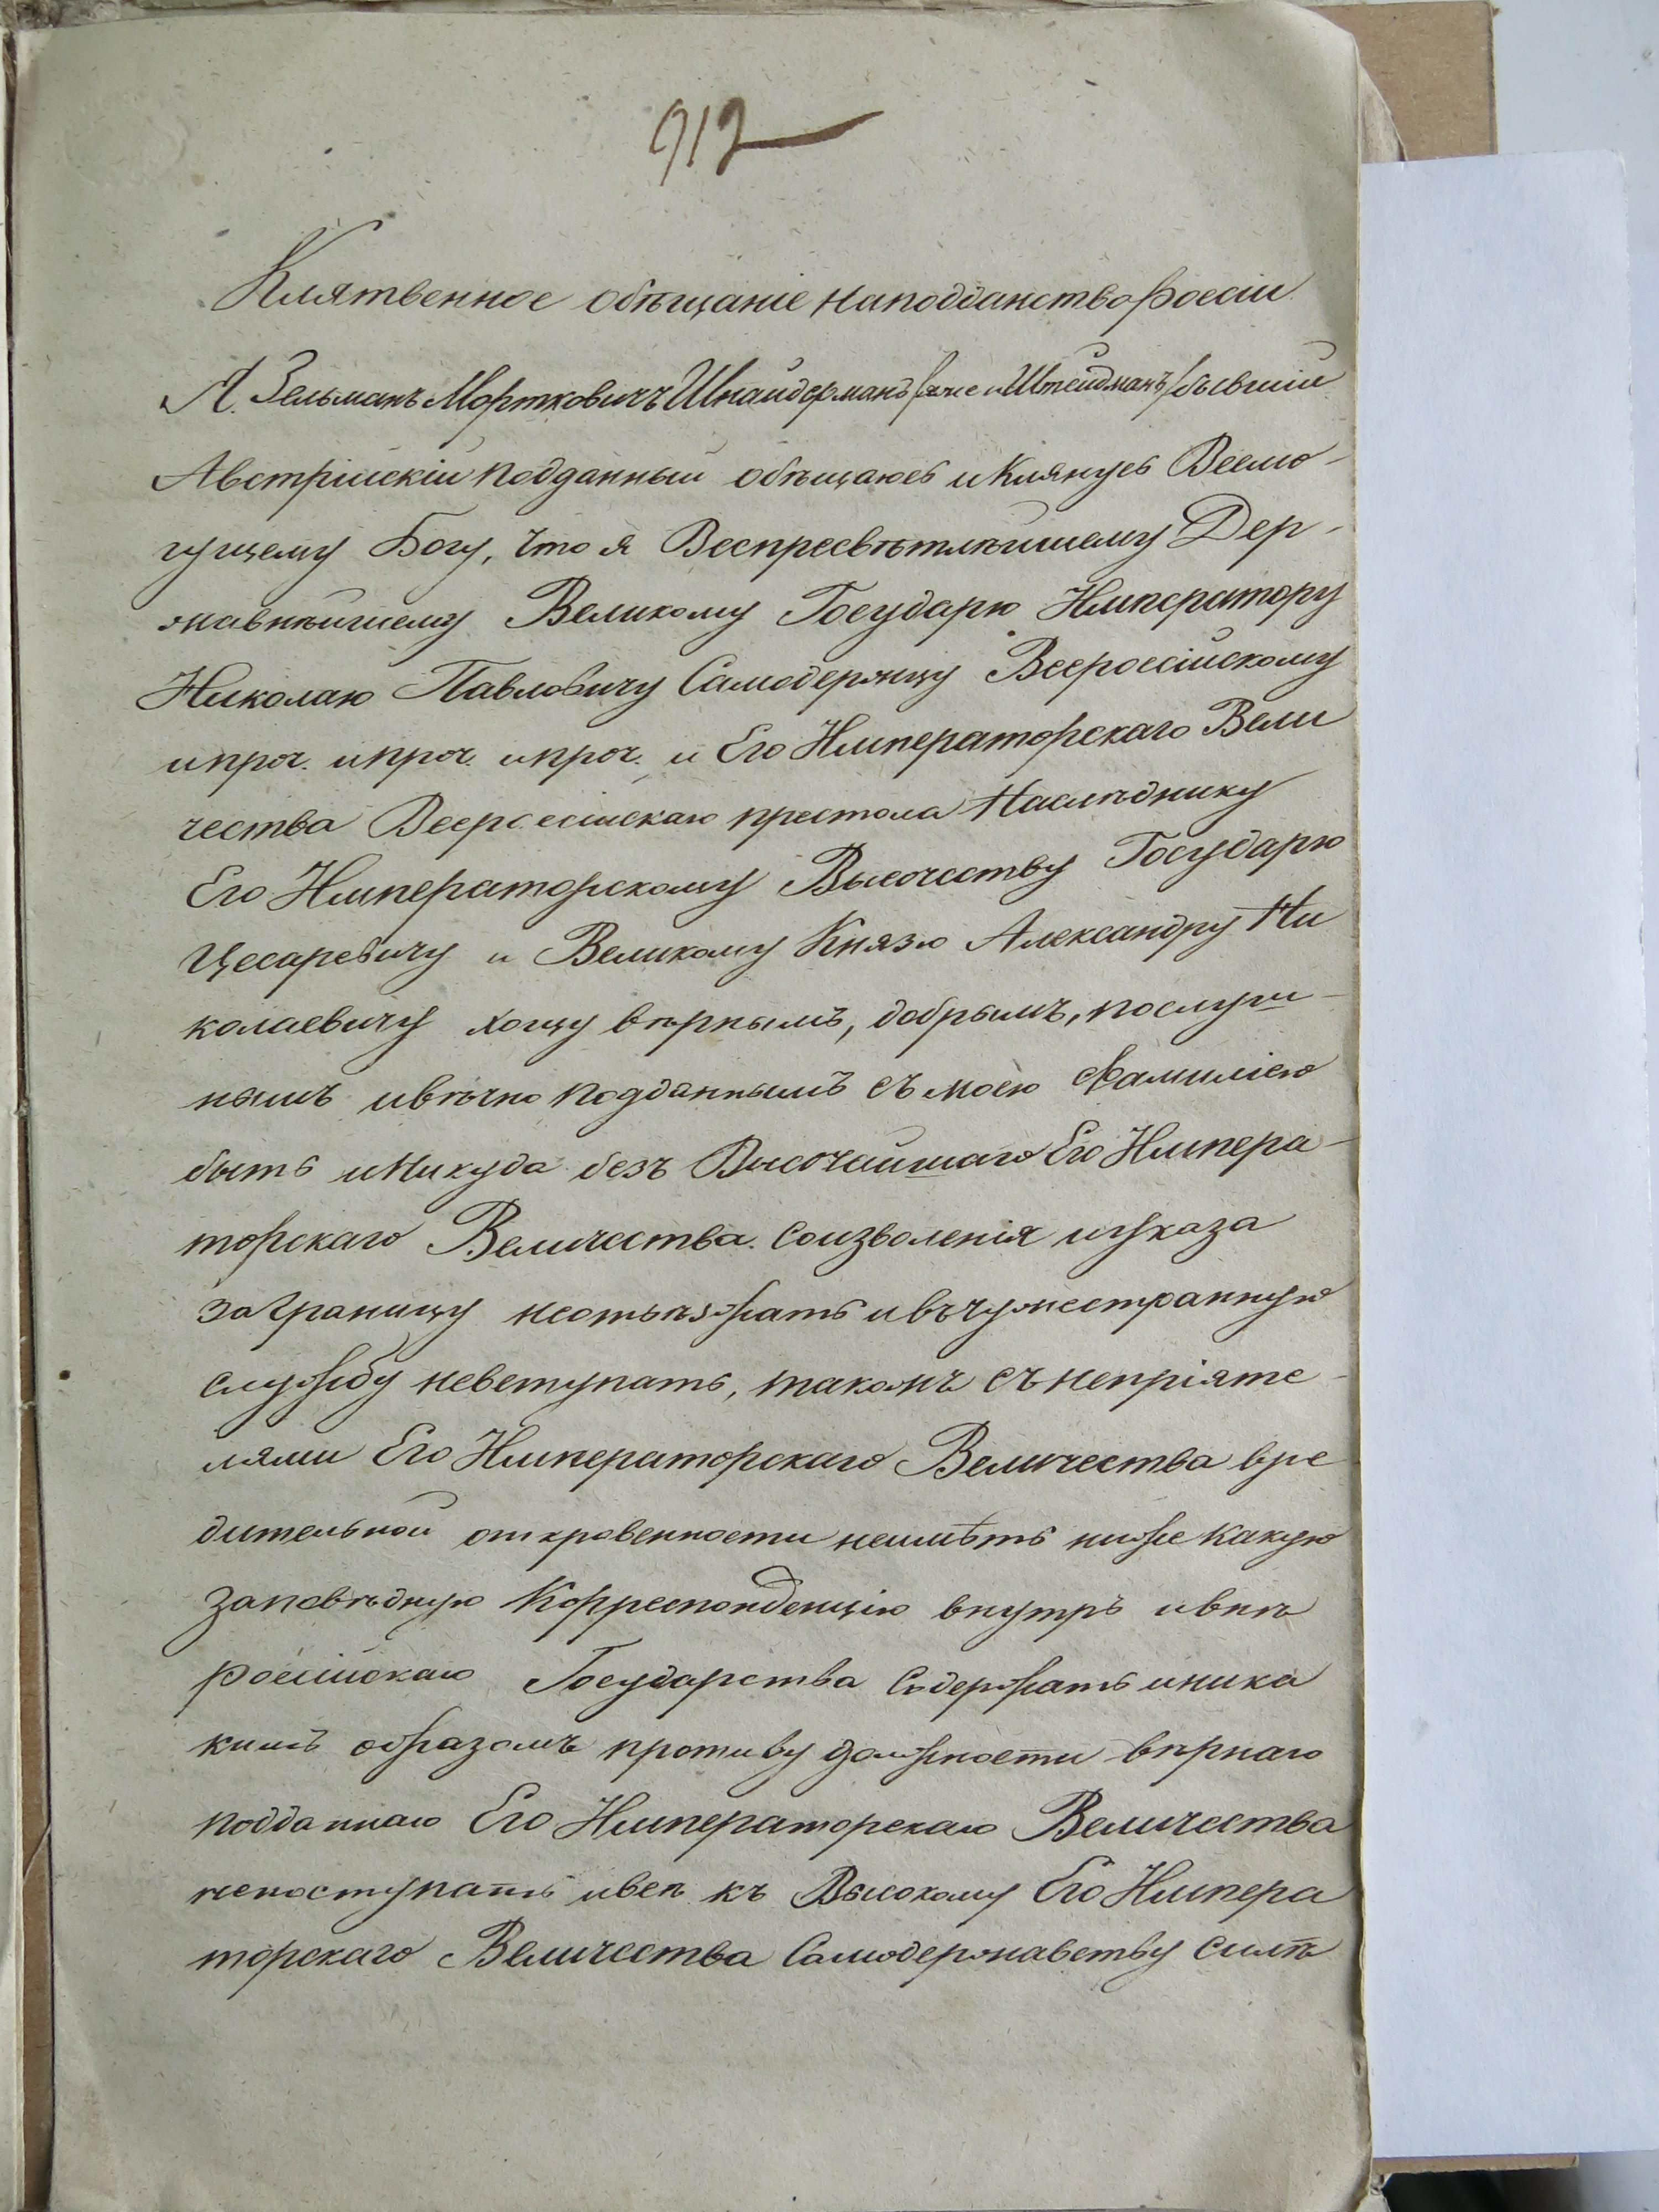 912
Клятвенное обѣщаніе наподданство Россіи
Я. Зельманъ Мортковичъ Шнайдерманъ /онъже и Штейдманъ/ бывшій
Австрійскій подданный обѣщаюсь и клянусь Всемо-
гущему Богу, что я Всепресвѣтлѣйшему Дер-
жавнѣйшему Великому Государю Императору
Николаю Павловичу Самодержцу Всероссійскому
ипроч. ипроч. ипроч. и Его Императорскаго Вели
чества Всероссійскаго престола Наслѣднику
Его Императорскому Высочеству Государю
Цесаревичу и Великому Князю Александру Ни
колаевичу хощу вѣрнымъ, добрымъ, послуш-
нымъ ивѣчно подданнымъ съ моею Фамиліею
быть иникуда безъ Высочайшаго Его Импера-
торскаго Величества соизволенія иуказа
заграницу неотъѣзжать ивъчужестранную
службу невступать, такожъ съ непріяте-
лями Его Императорскаго Величества вре
дительной откровенности неимѣть ниже какую
заповѣдную Корреспонденцію внутрь ивнѣ
россійскаго Государства содержать иника
кимъ образомъ противу должности вѣрнаго
подданнаго Его Императорскаго Величества
непоступать ивсѣ къ Высокому Его Импера
торскаго Величества Самодержавству силѣ